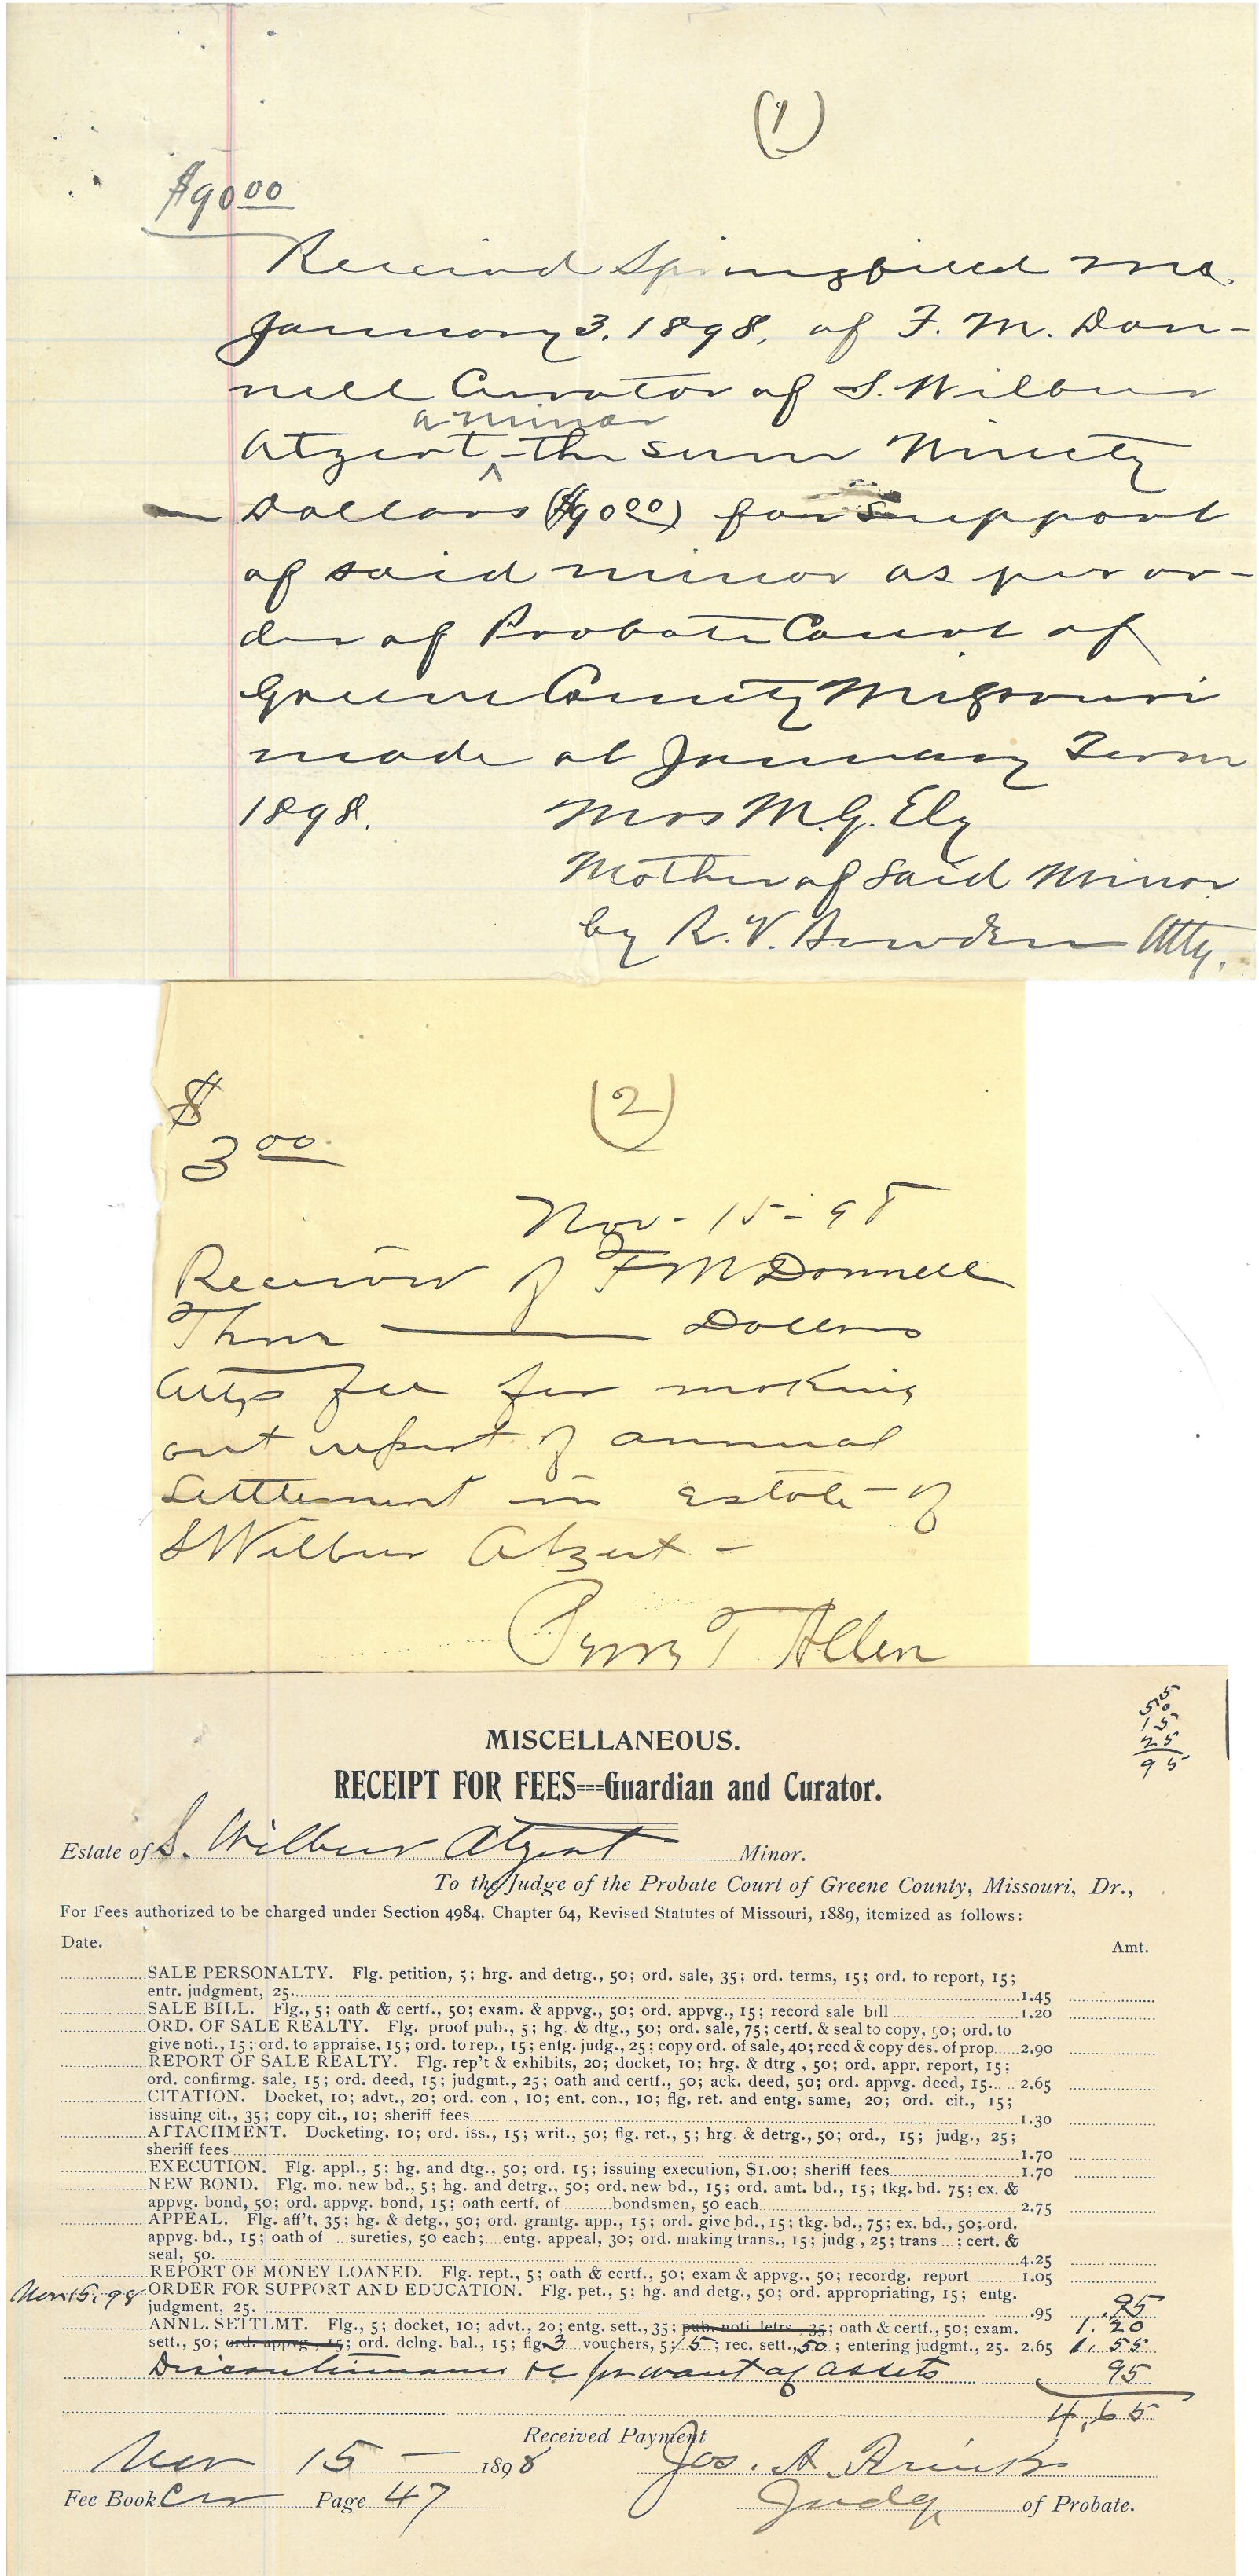 (1)
$90.00
Received Springfield Mo.
January 3, 1898, of F. M. Don-
nell Curator of S. Wilbur
a minor
Atzert ^ the sum Ninety
Dollars ($90.00) for support
of said minor as per or-
der of Probate Court of
Greene County Missouri
made at January Term
1898. Mrs M.G. Ely
Mother of Said Minor
by R. V. Bowden Atty.
(2)
$
3.00
Nov - 15 - 98
Received of F M Donnell
Three ——— Dollars
Attys fee for making
out report of annual
Settlement in Estate of
S Wilbur Atzert -
Perry T Allen
5
50
15
25
95
MISCELLANEOUS.
RECEIPT FOR FEES===Guardian and Curator.
Estate of S. Wilbur Atzert Minor.
To the Judge of the Probate Court of Greene County, Missouri, Dr.,
For Fees authorized to be charged under Section 4984, Chapter 64, Revised Statutes of Missouri, 1889, itemized as follows:
Date. Amt.
SALE PERSONALTY. Flg. petition, 5; hrg. and detrg., 50; ord. sale, 35; ord. terms, 15; ord. to report, 15;
entr. judgment, 25. 1.45
SALE BILL. Flg., 5; oath & certf., 50; exam. & appvg., 50; ord. appvg., 15; record sale bill 1.20
ORD. OF SALE REALTY. Flg. proof pub., 5; hg. & dtg., 50; ord. sale, 75; certf. & seal to copy, 50; ord. to
give noti., 15; ord. to appraise, 15; ord. to rep., 15; entg. judg., 25; copy ord. of sale, 40; recd & copy des. of prop. 2.90
REPORT OF SALE REALTY. Flg. rep't & exhibits, 20; docket, 10; hrg. & dtrg , 50; ord. appr. report, 15;
ord. confirmg. sale, 15; ord. deed, 15; judgmt., 25; oath and certf., 50; ack. deed, 50; ord. appvg. deed, 15. 2.65
CITATION. Docket, 10; advt., 20; ord. con , 10; ent. con., 10; flg. ret. and entg. same, 20; ord. cit., 15;
issuing cit., 35; copy cit., 10; sheriff fees 1.30
ATTACHMENT. Docketing, 10; ord. iss., 15; writ., 50; flg. ret., 5; hrg. & detrg., 50; ord., 15; judg., 25;
sheriff fees 1.70
EXECUTION. Flg. appl., 5; hg. and dtg., 50; ord. 15; issuing execution, $1.00; sheriff fees 1.70
NEW BOND. Flg. mo. new bd., 5; hg. and detrg., 50; ord. new bd., 15; ord. amt. bd., 15; tkg. bd. 75; ex. &
appvg. bond, 50; ord. appvg. bond, 15; oath certf. of bondsmen, 50 each 2.75
APPEAL. Flg. aff't, 35; hg. & detg., 50; ord. grantg. app., 15; ord. give bd., 15; tkg. bd., 75; ex. bd., 50; ord.
appvg. bd., 15; oath of sureties, 50 each; entg. appeal, 30; ord. making trans., 15; judg., 25; trans ; cert. &
seal, 50. 4.25
REPORT OF MONEY LOANED. Flg. rept., 5; oath & certf., 50; exam & appvg., 50; recordg. report 1.05
Nov 15. 98 ORDER FOR SUPPORT AND EDUCATION. Flg. pet., 5; hg. and detg., 50; ord. appropriating, 15; entg.
judgment, 25. .95 .95
ANNL. SETTLMT. Flg., 5; docket, 10; advt., 20; entg. sett., 35; pub. noti. letrs., 35; oath & certf., 50; exam. 1.20
sett., 50; ord. appvg., 15; ord. dclng. bal., 15; flg. 3 vouchers, 5; 15; rec. sett., 50; entering judgmt., 25. 2.65 1.55
Discontinuance &c for want of assets 95
4.65
Received Payment
Nov 15 — 1898 Jos. A.
Fee Book Cur Page 47 Judge of Probate.